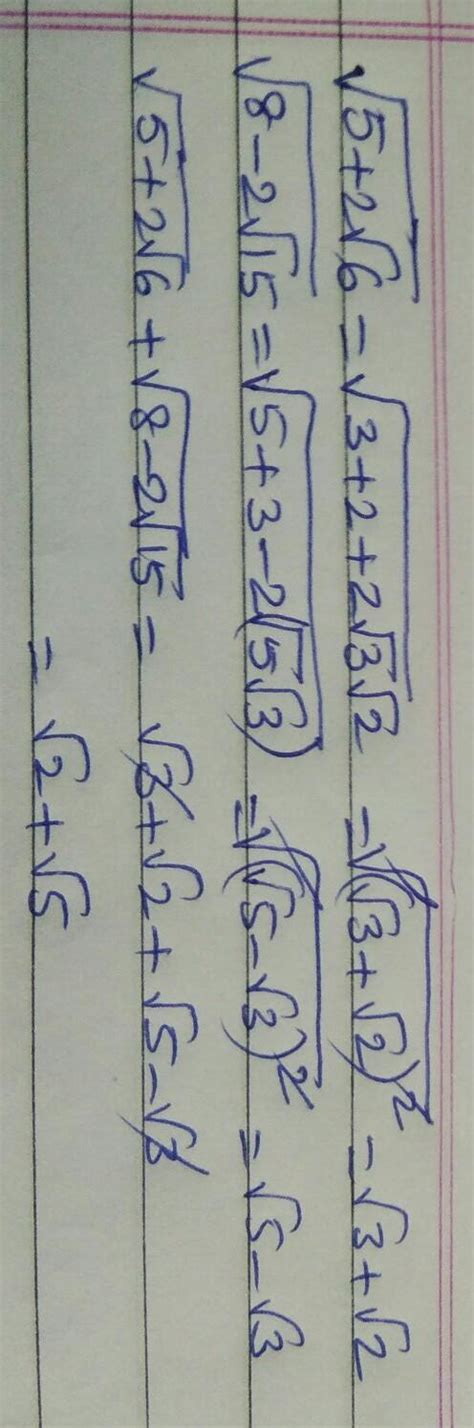 √(5+2√6) = √(3+2+2√3√2) = √((√3+√2)²) = √3+√2
√(8-2√15) = √(5+3-2(√5√3)) = √((√5-√3)²) = √5-√3
√(5+2√6) + √(8-2√15) = √3+√2+√5-√3
= √2+√5